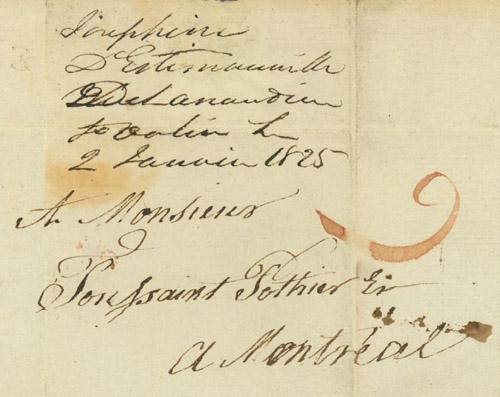 Josephine
D'Estimauville
DeLanaudiere
2 Janvier 1825
A Monsieur
Toussaint Pothier Er
a Montréal